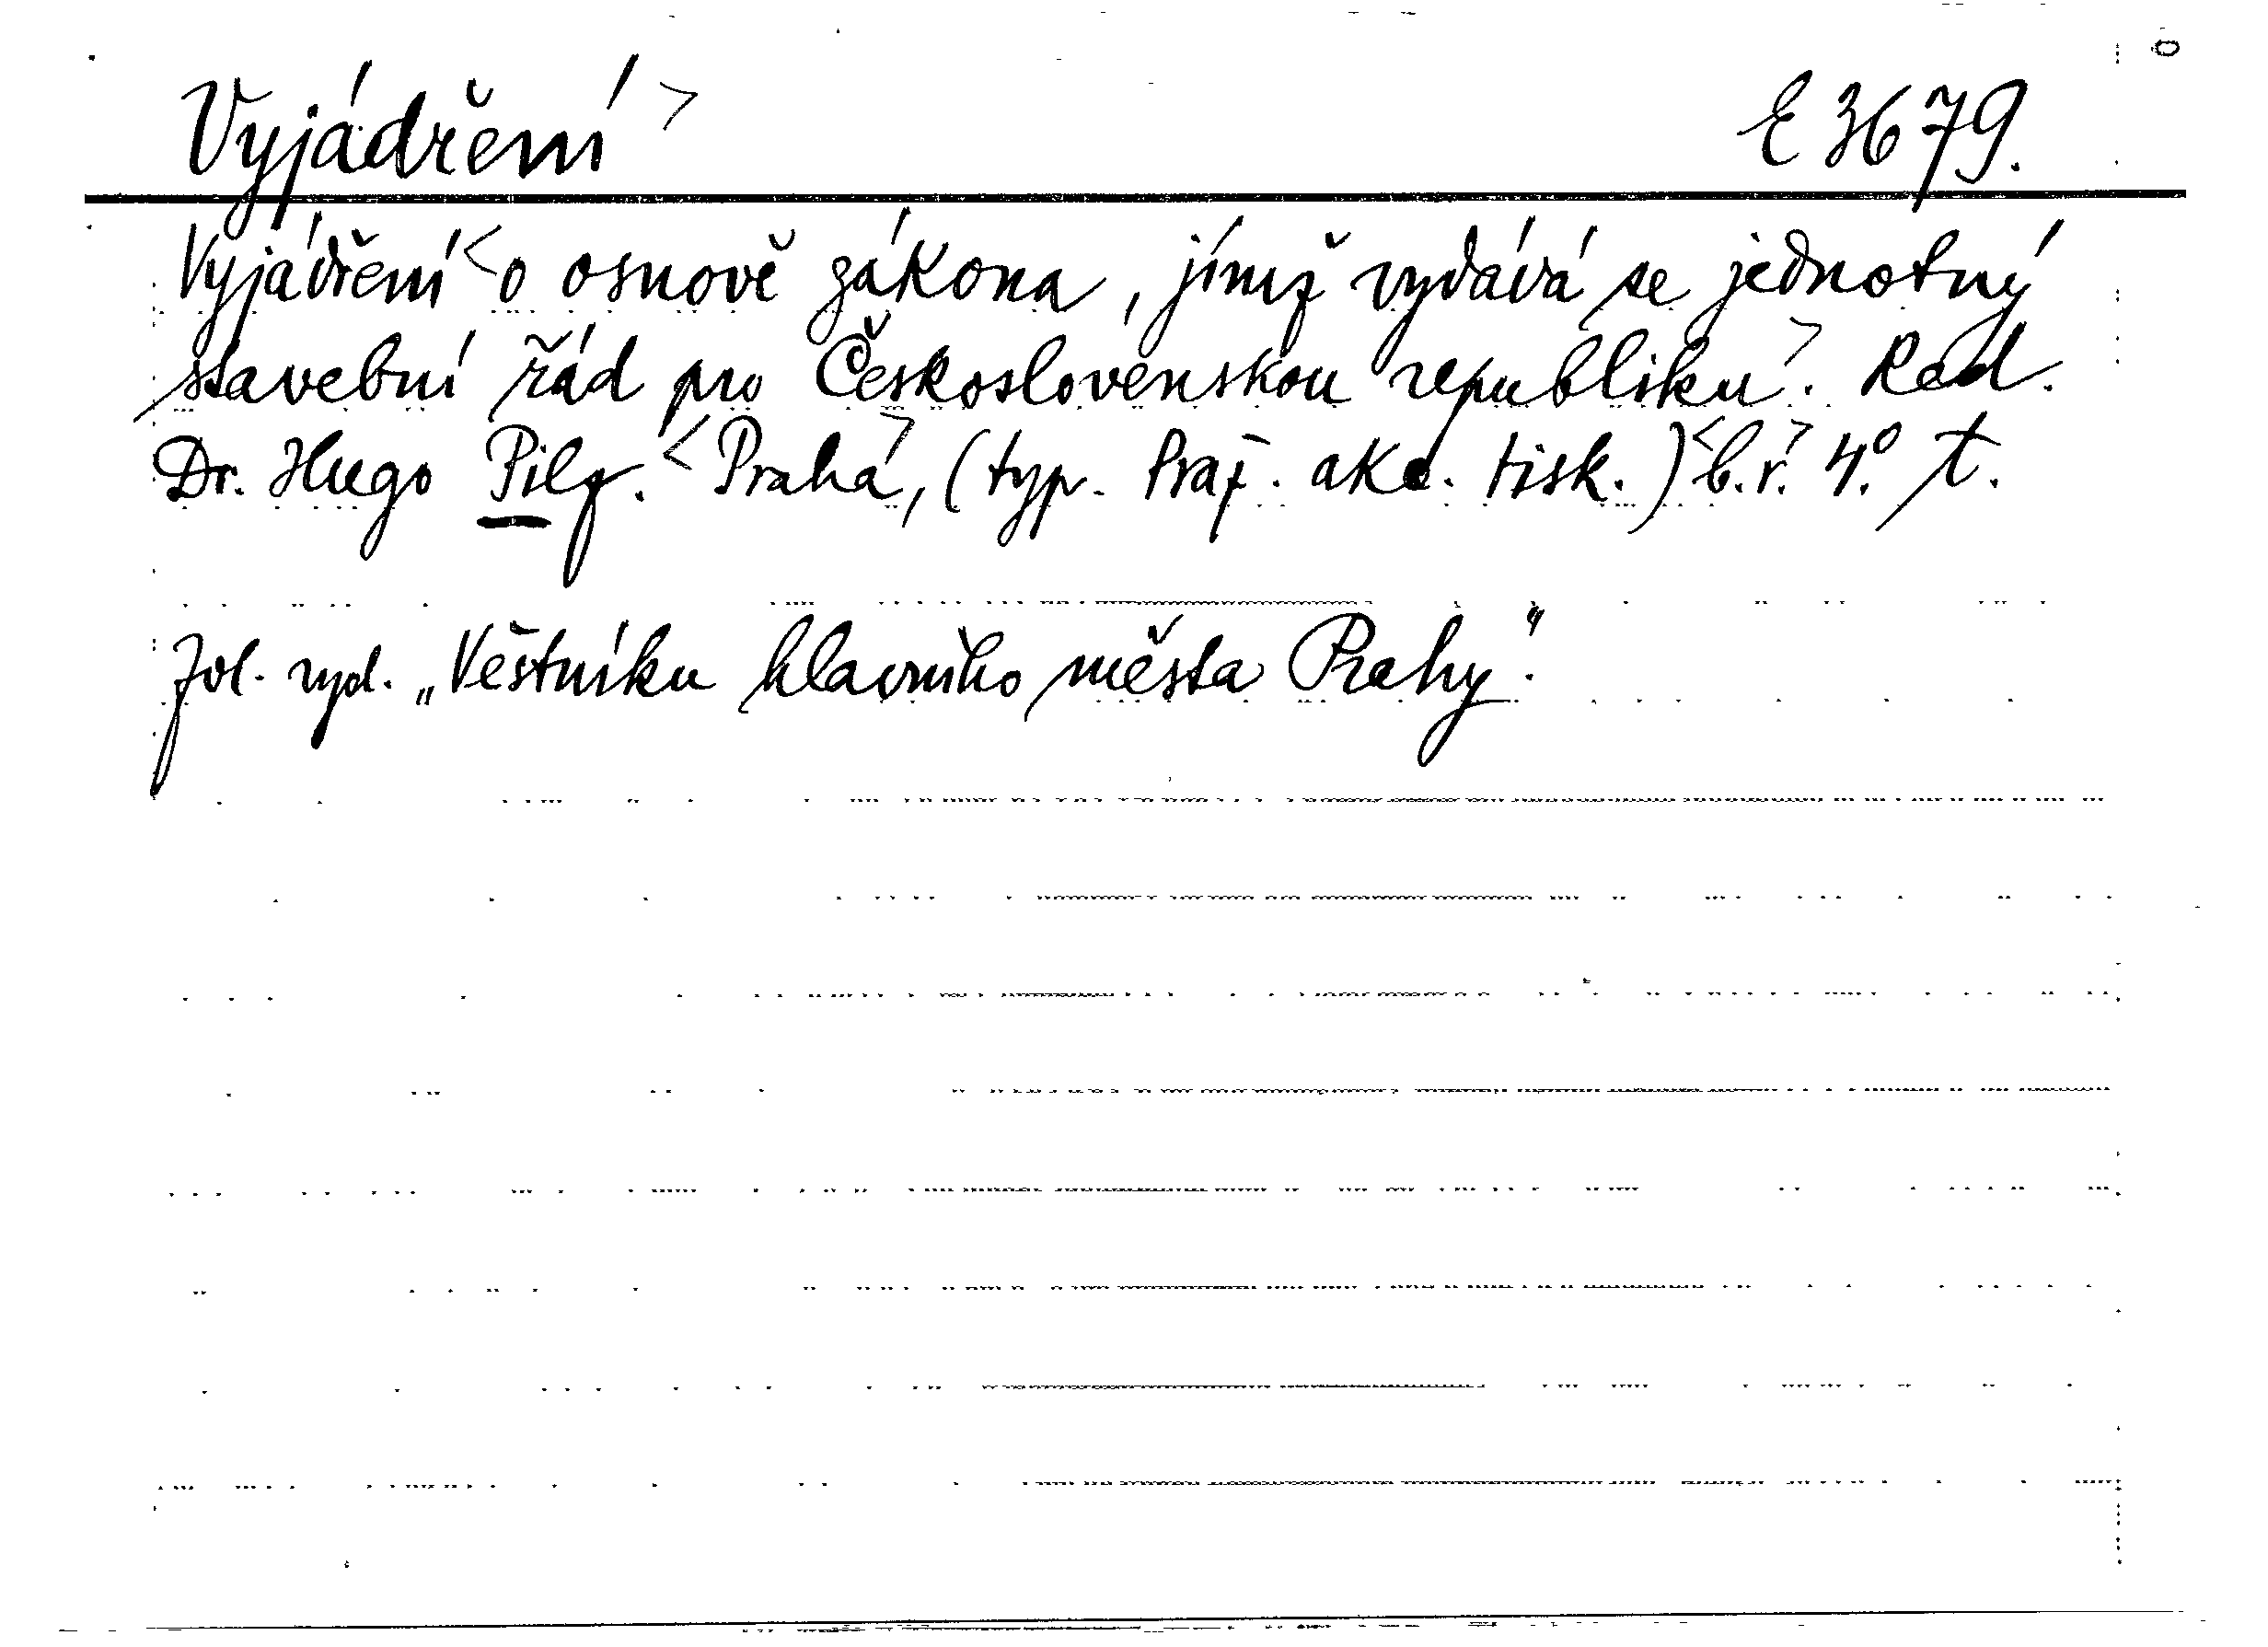 Vyjádření> E 3679.
Vyjádření< o osnově zákona, jímž vydává se jednotný
stavební řád pro Československou republiku>. Red.
Dr. Hugo Pilz. <Praha>, (typ. Praž. akc. tisk.) <b.r.> 4.° t.
Zvl. vyd. „Věstníku hlavního města Prahy".